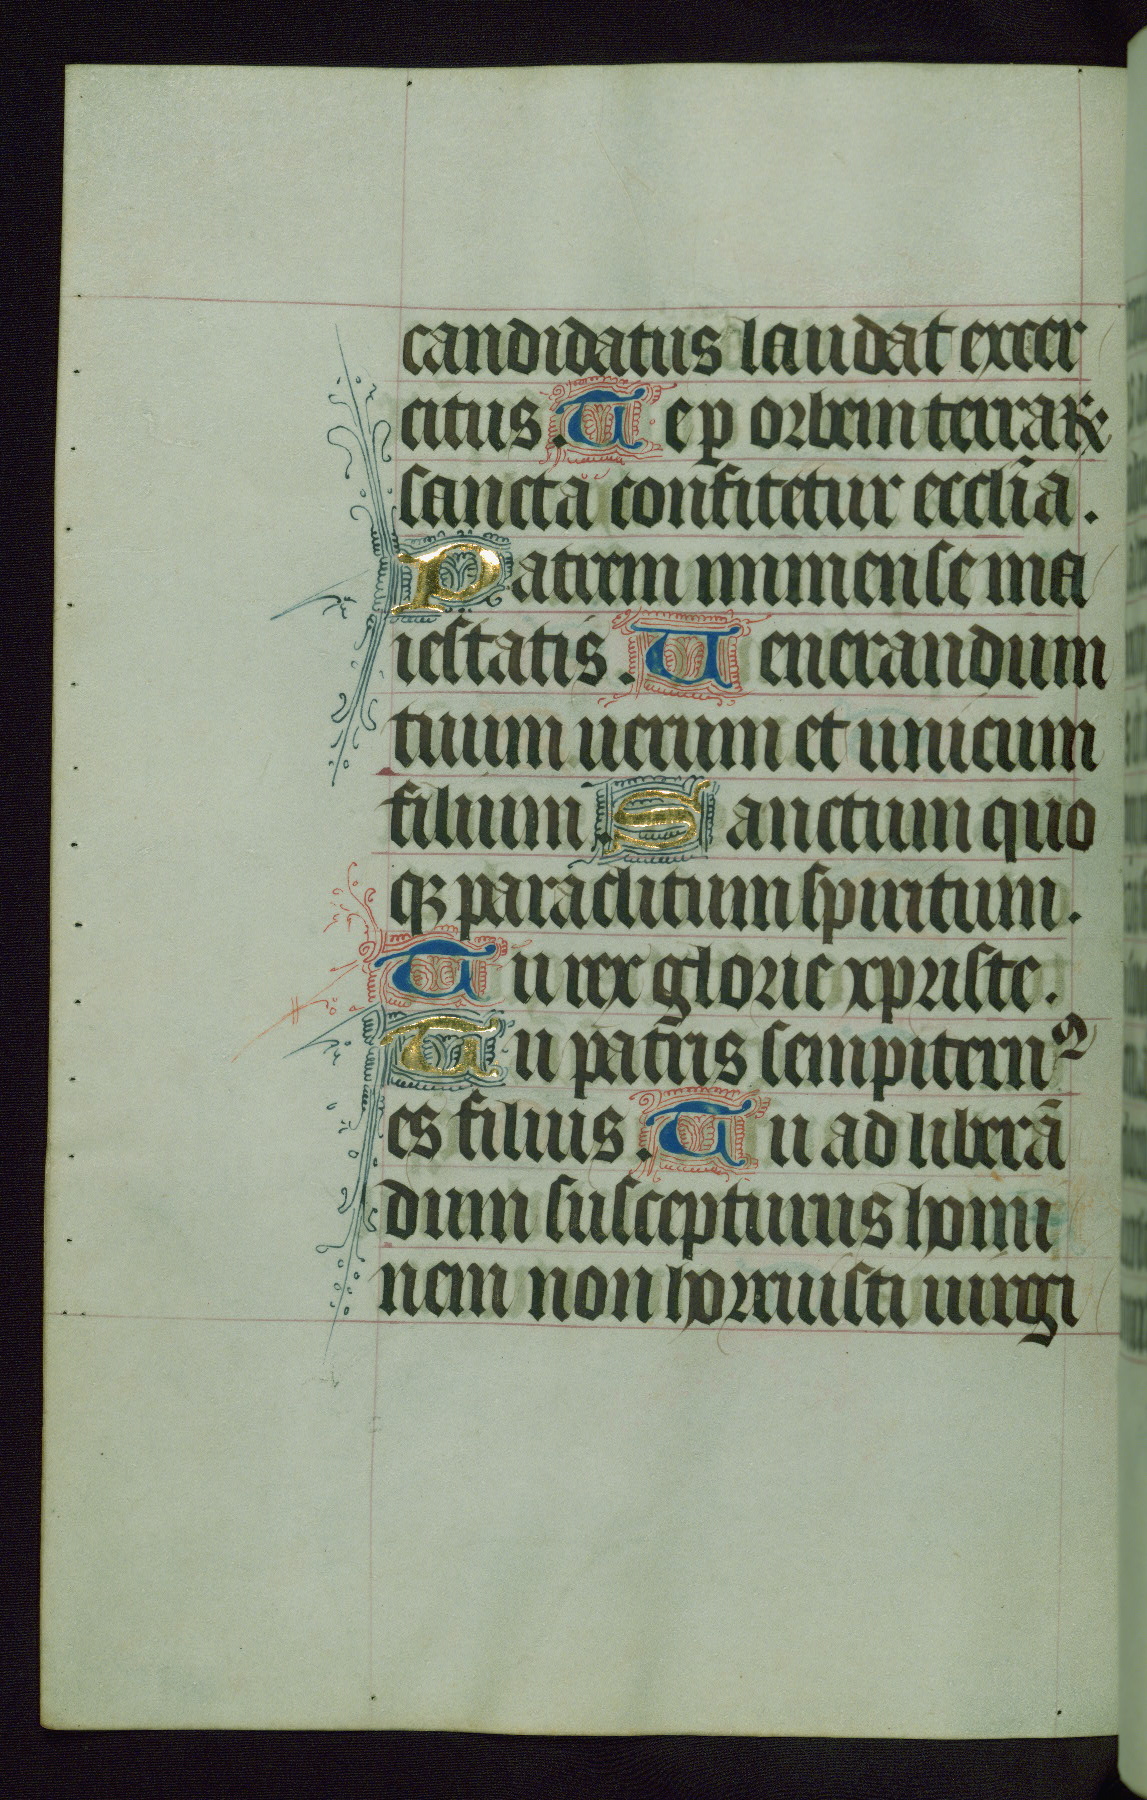 candidatus laudat excer
citus. Te ꝑ orbem terraꝝ
sancta confitetur ecclīa.
Patrem immense ma
iestatis. Uenerandum
tuum uerum et unicum
filium. Sanctum quo
qꝫ paraclitum spiritum.
Tu rex glorie xpriste.
Tu patris sempiternꝰ
es filius. Tu ad liberā
dum suscepturus homi
nem non horruisti uirgi